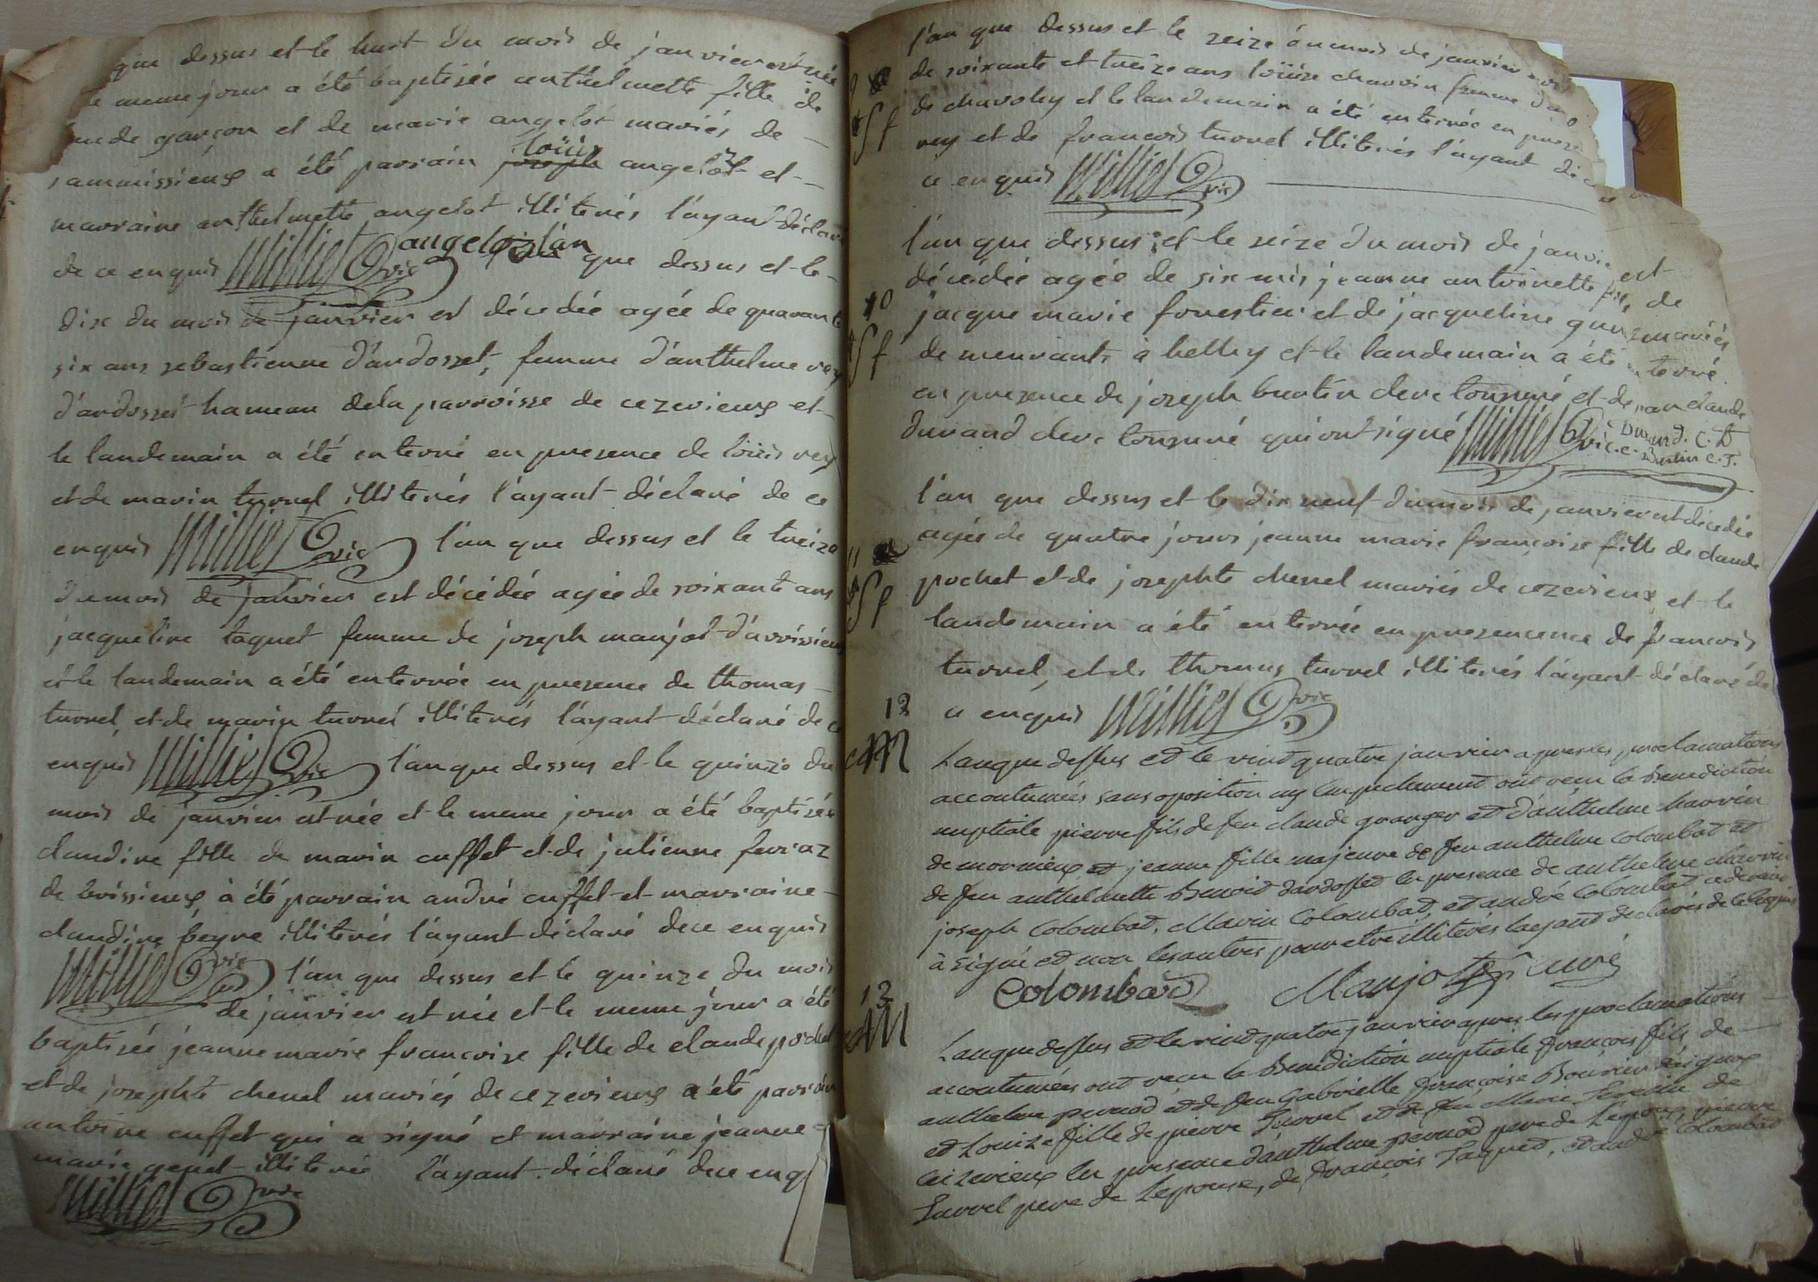 que dessus et le huit du mois de janvier est née
le meme jour a été baptisée anthelmette fille de
garçon et de marie angelot mariés de
ammissieux a été parrain joseph loüis angelot et
marraine anthelmette angelot illiterés l'ayant déclaré
de ce enquis Milliet vic angelot l'an que dessus et le
dix du mois de janvier est décedée agée de quarante
six ans sebastienne d'ardosset, femme d'anthelme rey
d'ardosset hameau dela parroisse de cezerieux et
le landemain a été enterré en presence de loüis rey
et de marin turrel illiterés l'ayant déclaré de ce
enquis Milliet vic l'an que dessus et le treize
du mois de janvier est décédée agée de soixante ans
jacqueline taquet femme de joseph manjot d'avrissieu
et le landemain a été enterrée en presence de thomas
turrel et de marin turrel illiterés l'ayant déclaré de ce
enquis Milliet vic l'an que dessus et le quinze du
mois de janvier est née et le meme jour a été baptisée
claudine fille de marin cuffet et de julienne ferraz
de boissieux à été parrain andré cuffet et marraine
claudine peyre illiterés l'ayant déclaré de ce enquis
Milliet vic l'an que dessus et le quinze du mois
de janvier est née et le meme jour a été
baptisée jeanne marie francoise fille de claude pochet
et de josephte chenel mariés de cezerieux a été parrain
antoine cuffet qui a signé et marraine jeanne
marie genet illiterée l'ayant déclaré de ce enq
Milliet vic
l'an que dessus et le seize du mois de janvier
de soixante et treize ans loüise charvin femme
de charoley et le landemain a été enterrée en prese
rey et de francois turrel illiterés l'ayant
ce enquis Milliet vic
l'an que dessus et le seize du mois de janvier est
10
décedée agée de six mois jeanne antoinette fille de
jacque marie forestier et de jacqueline mariés
Sf
demeurants à belley et le landemain a été enterré
en presence de joseph burtin clerc tonsuré et de jean claude
durand clerc tonsuré qui ont signé Milliet vic. Durand. C. T.
Burtin C. T.
l'an que dessus et le dix neuf du mois de janvier est décedée
11
agée de quatre jours jeanne marie françoise fille de claude
Sf
pochet et de josephte chenel mariés de cezerieux et le
landemain a été enterrée en presencence de francois
turrel, et de thomas turrel illiterés l'ayant déclaré de
12
ce enquis Milliet vic
M
L'an que dessus et le vint quatre janvier apres les proclamations
accoutumées sans oposition ny empechement ont recu la Benediction
nuptiale pierre fils de feu claude granger et d'anthelme charvin
de mornieux et jeanne fille majeure de feu anthelme Colombat et
de feu anthelmette Benoid dardosset en presence de anthelme charvin
joseph Colombat, Marin Colombat, et andré Colombat, ce dernier
à signé et non les autres pour etre illiterés laÿant declarés de ce enquis
Colombad Manjot curé
13
M
L'an que dessus et le vint quatre janvier apres les proclamations
accoutumées ont recu la Benediction nuptiale françois fils de
anthelme pernod et de feu Gabrielle françoise
et Louize fille de pierre Turrel et de feu Marie de
ceizerieux en presence d'anthelme pernod pere de L'epoux, pierre
Turrel pere de Lepouse, de françois Taquet, et andré Colombat